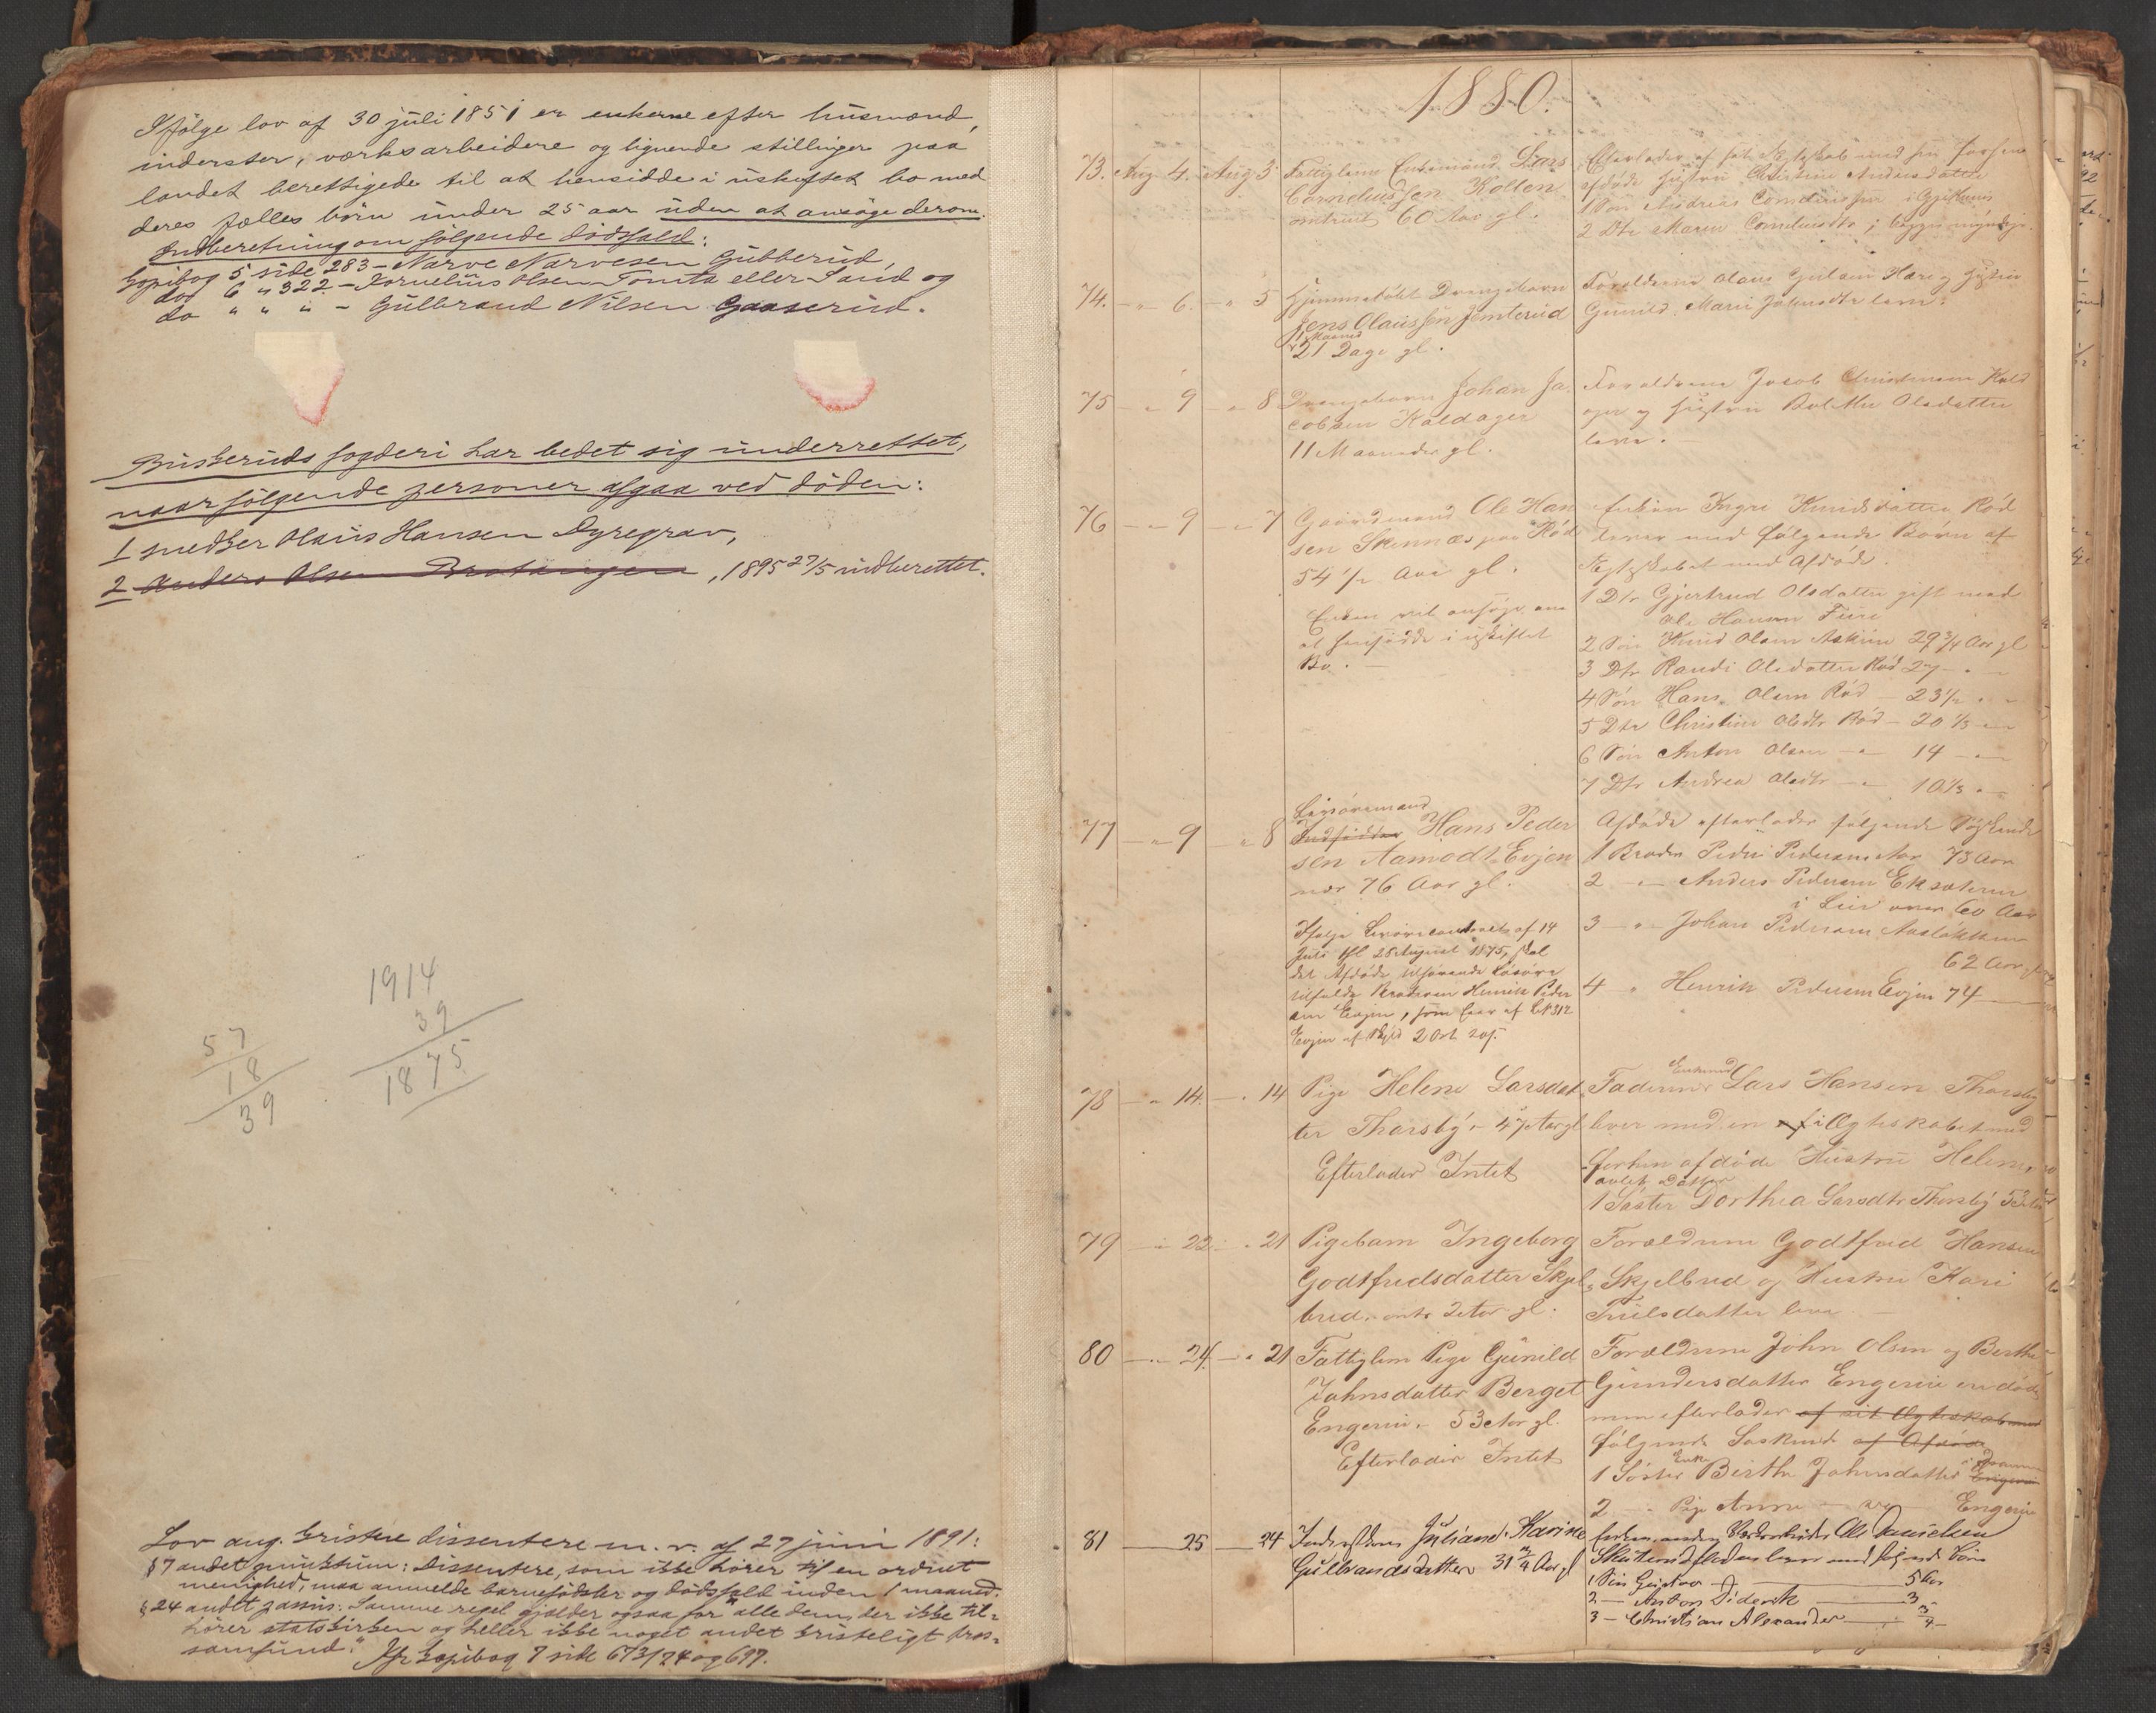 Ifølge lov af 30 juli 1851 er enkerne efter husmænd,
inderster, værksarbeidere og lignende stillinger paa
landet berettigede til at hensidde i uskiftet bo med
deres fælles börn under 25 aar uden at ansöge derom.
Indberetning om fölgende dödsfald:
Kopibog 5 side 283 - Narve Narvesen Gubberud,
do 6 " 322 - Kornelius Olsen Tomta eller Sand og
do " " " - Gulbrand Nilsen Gaaserud.
Buskeruds fogderi har bedet sig underrettet,
naar fölgende personer afgaa ved döden:
1 snedker Olaus Hansen Dyregrav,
2 Anders Olsen Bratængen, 1895 27/5 indberettet.
1914
39
1875
57
18
39
Lov ang. kristne dissentere m. v. af 27 juni 1891:
§ 7 andet punktum: Dissentere, som ikke hører til en ordnet
menighed, maa anmelde barnefødsler og dødsfald inden 1 maaned.
§ 24 andet passus: Samme regel gjælder ogsaa for "alle dem, der ikke til-
hører statskirken og heller ikke noget andet kristeligt tros-
samfund." Jfr kopibog 7 side 673/74 og 697.
1880.
73. Aug 4. Aug 3 Fattiglem Enkemand Lars
Corneliussen Kolten
omtrent 60 Aar gl.
Efterlader af sit Ægteskab med sin forhen
afdøde Hustru Christine Andersdatter
1 Søn Andreas Corneliussen i
2 Dtr Maren Corneliusdtr
74. - " 6. - " 5 Hjemmedøbt Drengebarn
Jens Olaussen Jemterud
1 Maaned
21 Dage gl.
Forældrene Olaus Julsen Hære og Hustru
Gunild Marie Johnsdtr lever.
75 - " 9 - " 8 Drengebarn Johan Ja-
cobsen Koldager
11 Maaneder gl.
Forældrene Jacob Christensen Kold
ager og Hustru Bolette Olsdatter
lever.
76 - " 9 - " 7 Gaardmand Ole Han
sen Skinnæs paa Rød
54 1/2 Aar gl.
Enken vil ansøge om
at hensidde i uskiftet
Bo.
Enken Ingri Knudsdatter Rød
lever med følgende Børn af
Ægteskabet med Afdøde.
1 Dtr Gjertrud Olsdatter gift med
Ole Hansen Fure
2 Søn Knud Olsen Askim 29 3/4 Aar gl
3 Dtr Randi Olsdatter Rød 27 - "
4 Søn Hans Olsen Rød - 23 1/2 " -
5 Dtr Christine Olsdtr Rød - 20 1/3 " -
6 Søn Anton Olsen - " 14 - "
7 Dtr Andrea Olsdtr - " 10 1/3 " -
77 - " 9 " 8 Legsøremand
Indsidder Hans Peder
sen Aamodt Evjen
nær 76 Aar gl.
Ifølge Livørecontract af 14
Juli thl 28 August 1875, skal
det Afdøde tilhørende Løsøre
tilfalde Broderen Henrik Peder
sen Evjen, som Eier af LN 312
Evjen af Skyld 2 Ort 20 s.
Afdøde efterlader følgende Søskende
1 Broder Peder Pedersen Aar 73 Aar
2 - " - Anders Pedersen Eksæteren
i Lier over 60 Aar
3 - " - Johan Pedersen Aaslakken
62 Aar
4 " Henrik Pedersen Evjen 74
78 - " 14. - " 14 Pige Helene Larsdat
ter Thorsby - 47 Aar gl
Efterlader Intet
Faderen Enkemd Lars Hansen Thorsby
lever med en i Ægteskabet med
forhen afdøde Hustru Helene
avlet Datter
1 Søster Dorthea Larsdtr Thorsby
79 - " 22 - " 21 Pigebarn Ingeborg
Godtfredsdatter Skjel
bred - omtr 2 Aar gl.
Forældrene Godtfred Hansen
Skjelbred og Hustru Kari
Trulsdatter lever
80 - " 24 - " 21 Fattiglem Pige Gunild
Johnsdatter Berget
Engerin - 53 Aar gl.
Efterlader Intet
Forældrene John Olsen og Berthe
Gundersdatter Engerin er døde
men efterlader af sit Ægteskab med
følgende Søskende af Afdøde
1 Søster Enke Berthe Johnsdatter i Drammen Engerin
2 - " Pige Anne - " - Engerin
81 25 24 Inderstkone Juliane Karine
Gulbrandsdatter 31 3/4 Aar gl
Ole Danielsen
lever med følgende Børn
1 Søn Gustav 5 Aar
2 - Anton Diderik 3
3 - Christian Alexander 3/4 -